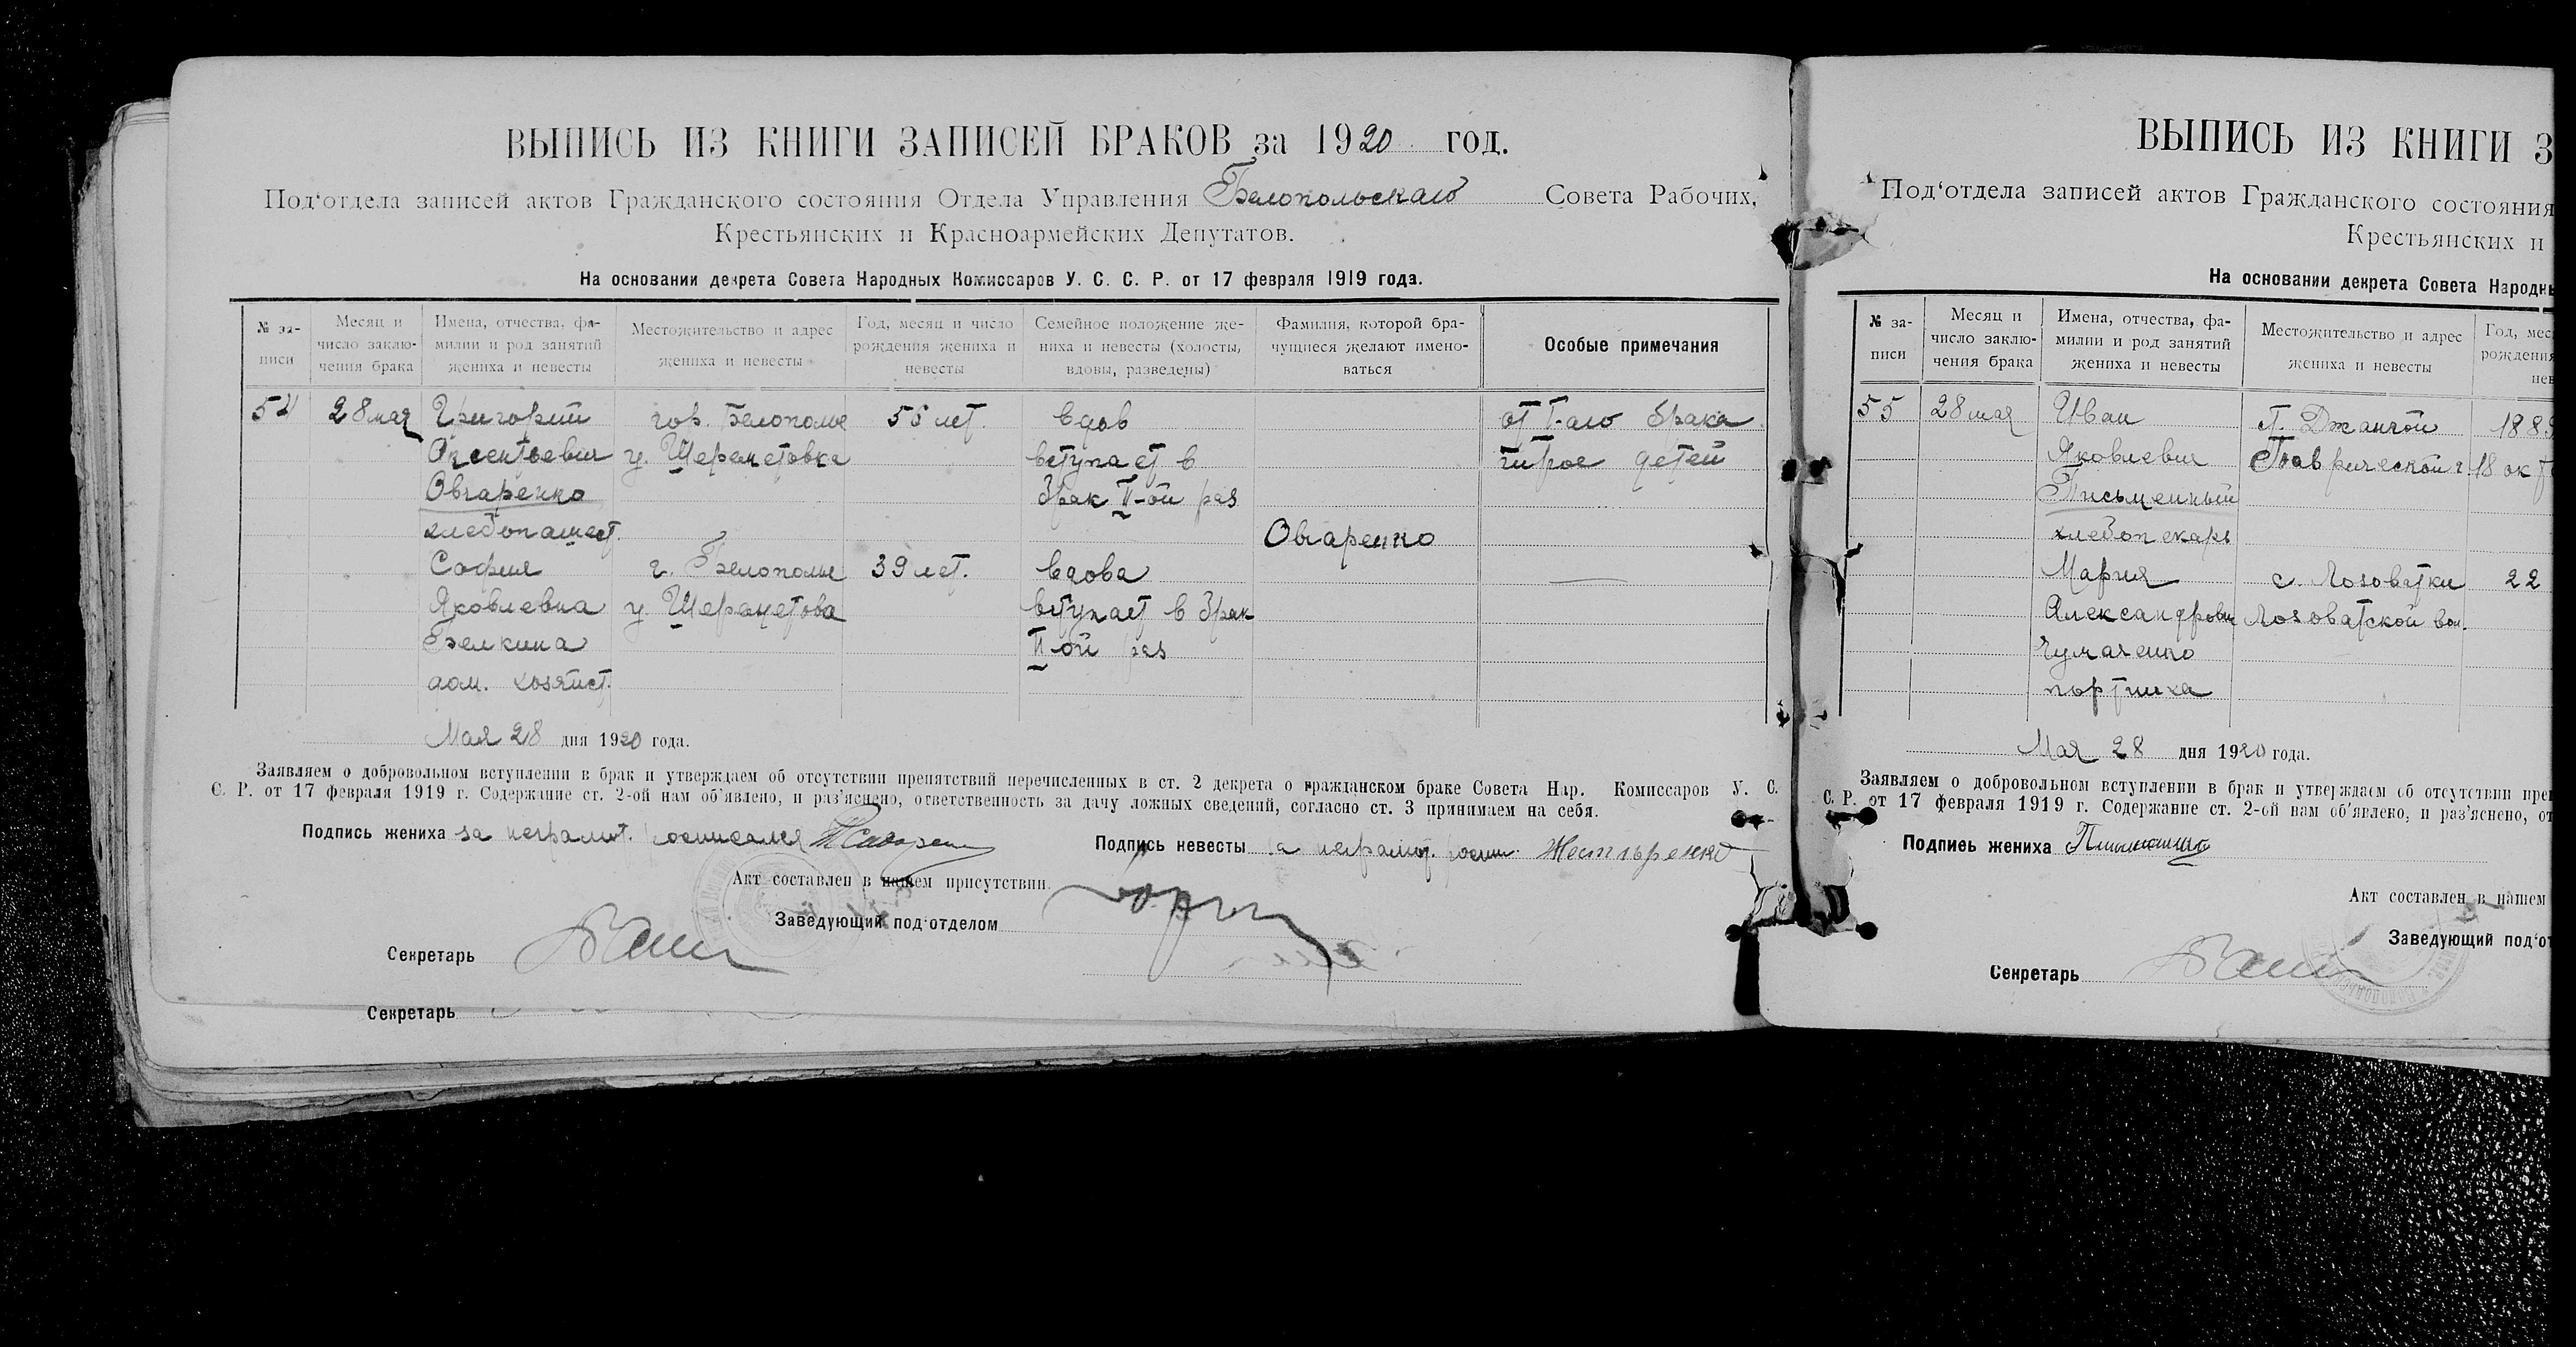 ВЫПИСЬ ИЗ КНИГИ ЗАПИСЕЙ БРАКОВ за 1920 год.
Под‘отдела записей актов Гражданского состояния Отдела Управления Белопольскаго Совета Рабочих,
Крестьянских и Красноармейских Депутатов.
На основании декрета Совета Народных Комиссаров У. С. С. Р. от 17 февраля 1919 года.
№ за-писи
Месяц и число заклю-чения брака
Имена, отчества, фа-милии и род занятий жениха и невесты
Местожительство и адрес жениха и невесты
Год, месяц и число рождения жениха и невесты
Семейное положение же-ниха и невесты (холосты, вдовы, разведены)
Фамилия, которой бра-чущиеся желают имено-ваться
Особые примечания
54 28 мая Григорий гор. Белополье 55 лет. вдов от I-аго брака
Аксентьевич у. Шереметовка вступает в трое детей
Овчаренко брак II-ой раз
хлебопашест. Овчаренко
София г. Белополье 39 лет. вдова
Яковлевна у Шереметова вступает в брак
Белкина II ой раз
дом. хозяйст.
Мая 28 дня 1920 года.
Заявляем о добровольном вступлении в брак и утверждаем об отсутствии препятствий перечисленных в ст. 2 декрета о гражданском браке Совета Нар. Комиссаров У. С.
С. Р. от 17 февраля 1919 г. Содержание ст. 2-ой нам об‘явлено, и раз‘яснено, ответственность за дачу ложных сведений, согласно ст. 3 принимаем на себя.
Подпись жениха за неграмот. росписался
Подпись невесты за неграмот. роспи.
Акт составлен в нашем присутствии.
Заведующий под‘отделом
Секретарь
Секретарь
ВЫПИСЬ ИЗ КНИГИ З
Под‘отдела записей актов Гражданского состояния
Крестьянских и
На основании декрета Совета Народн
№ за-писи
Месяц и число заклю-чения брака
Имена, отчества, фа-милии и род занятий жениха и невесты
Местожительство и адрес жениха и невесты
Год, мес
рождения
нев
55 28 мая Иван ст. Джанкой 188
Яковлевич Таврической г 18 окт
Письменный
хлебопекарь
Мария с. Лозоватки 22
Александровн Лозоватской вол.
Чумаченко
портниха
Мая 28 дня 1920 года.
Заявляем о добровольном вступлении в брак и утверждаем об отсутствии пре
С. Р. от 17 февраля 1919 г. Содержание ст. 2-ой нам об‘явлено, и раз‘яснено, от
Подпись жениха
Акт составлен в нашем
Заведующий под‘от
Секретарь